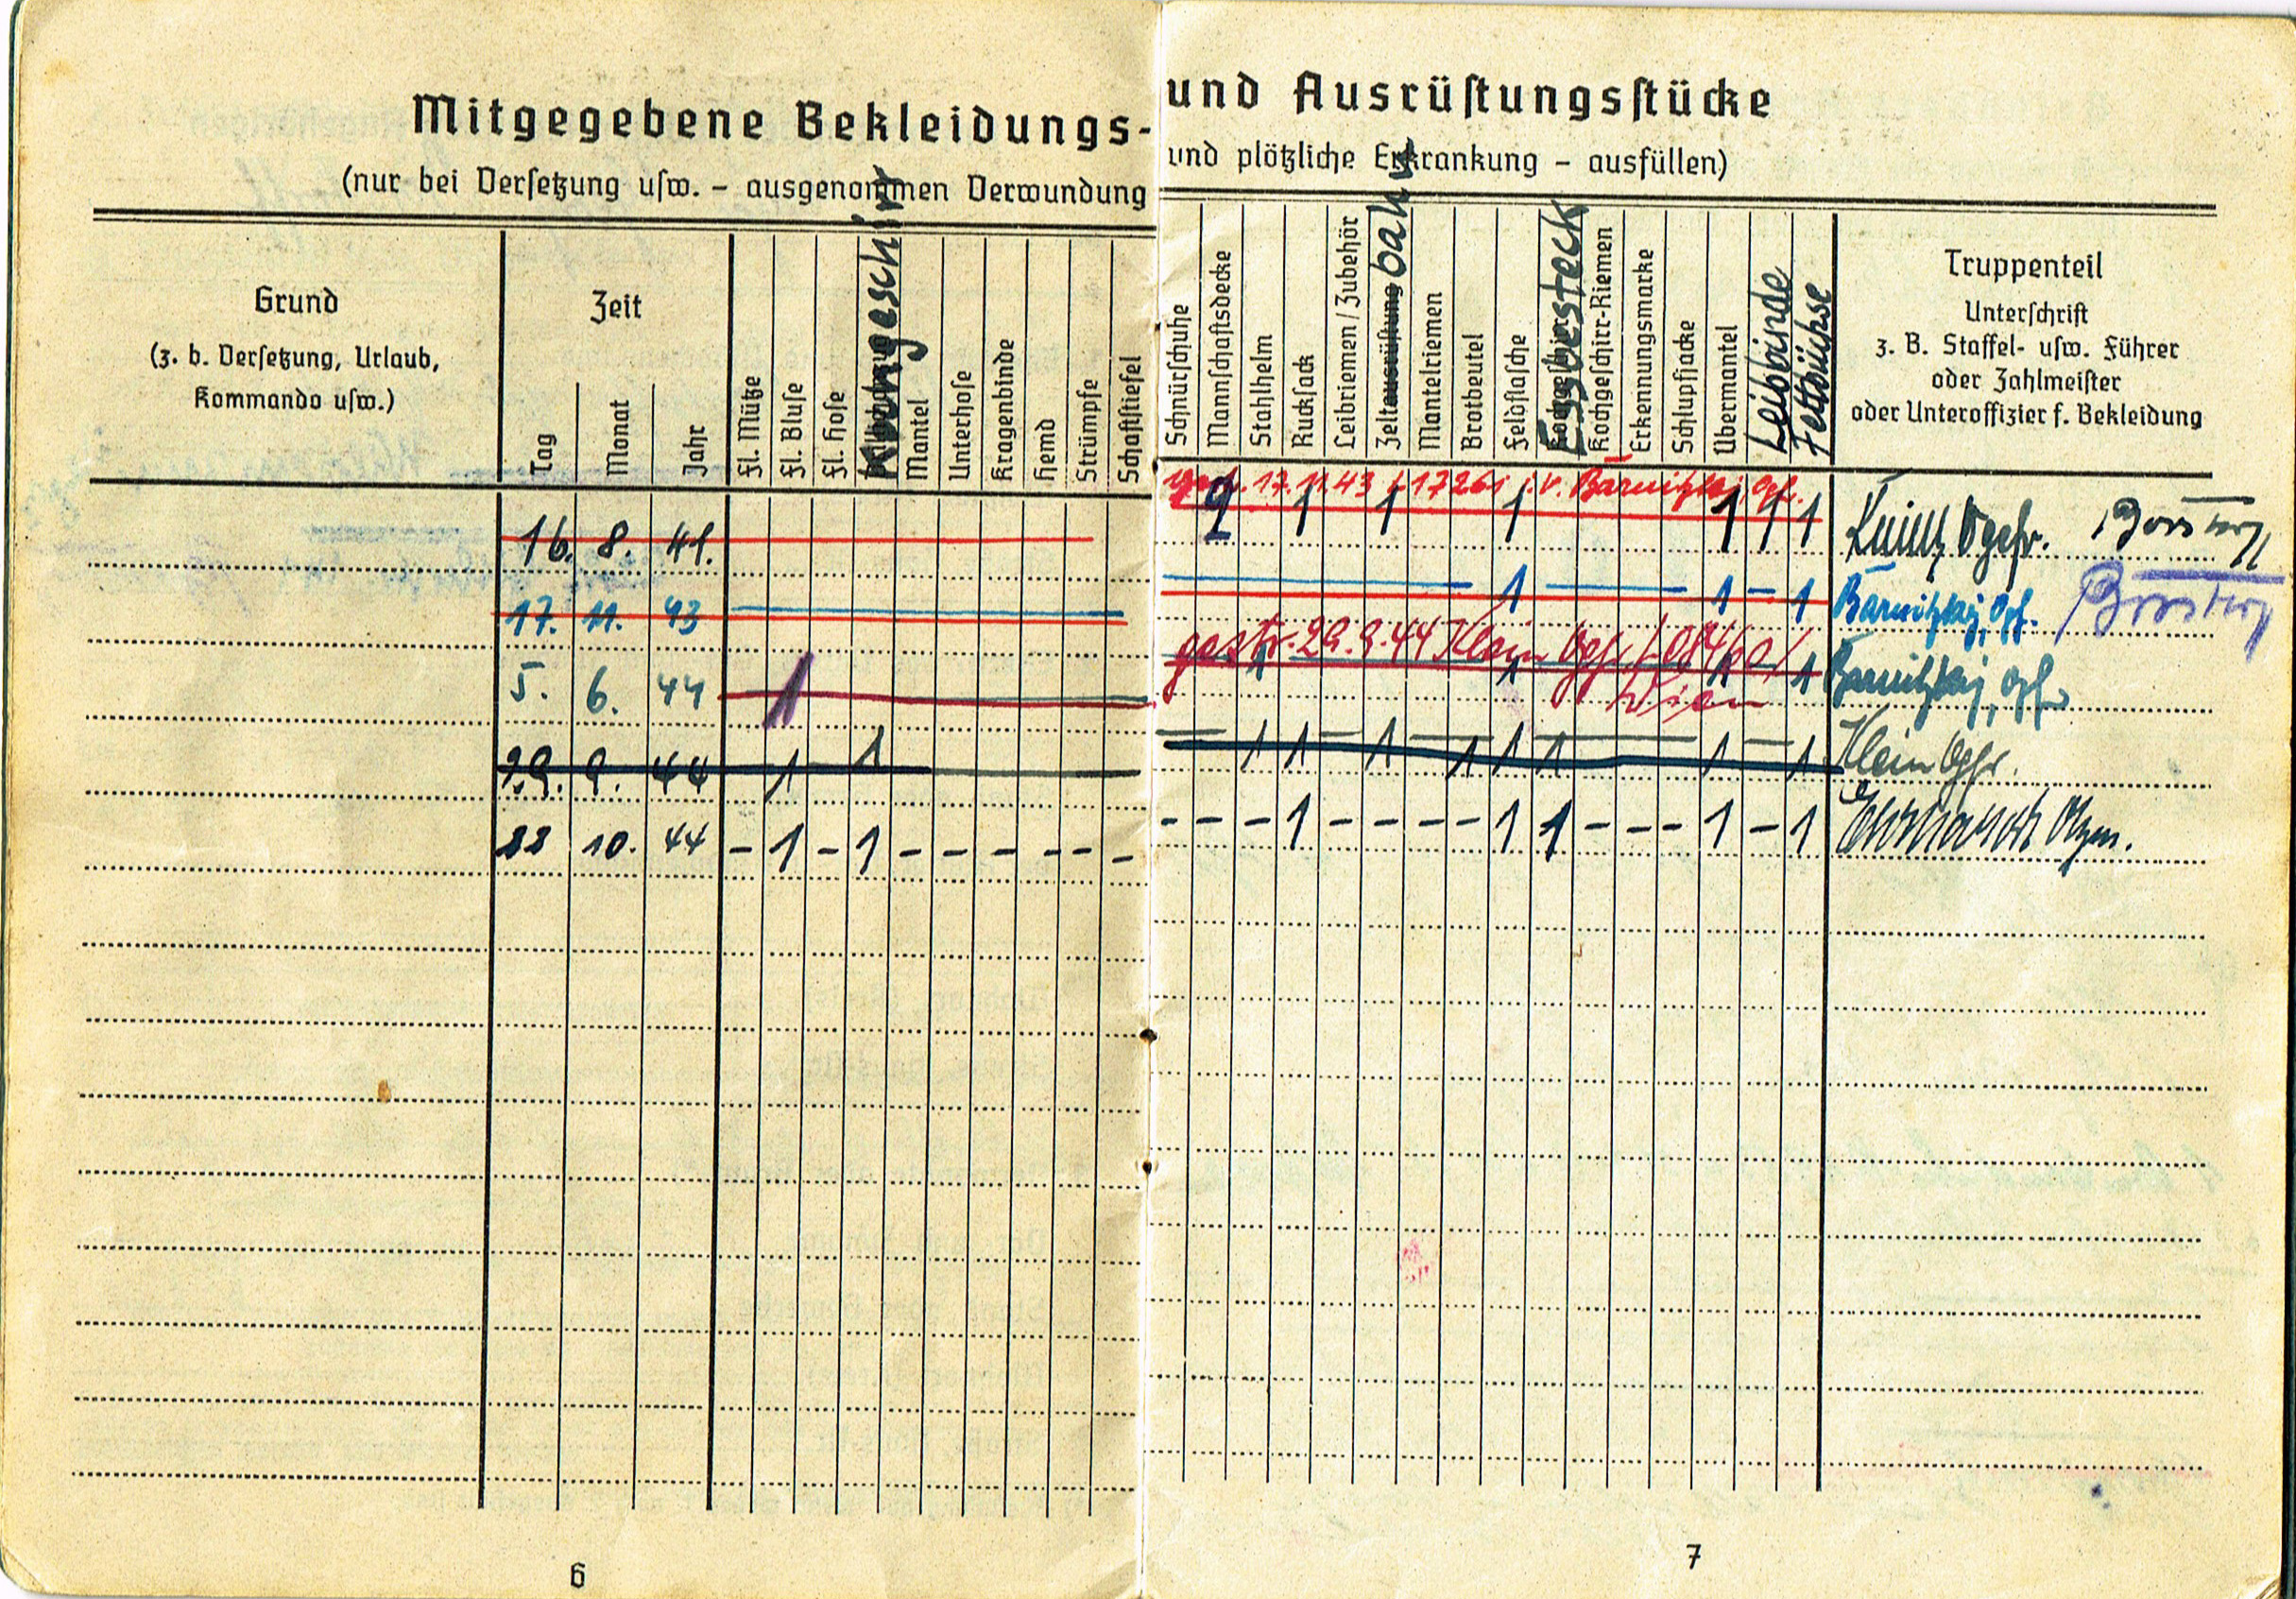 Mitgegebene Bekleidungs- und Ausrüstungsstücke
(nur bei Versetzung usw. – ausgenommen Verwundung und plötzliche Erkrankung – ausfüllen)
Grund
(z. b. Versetzung, Urlaub,
Kommando usw.)
Zeit
Tag
Monat
Jahr
Fl. Mütze
Fl. Bluse
Fl. Hose
Kochgeschirr
Mantel
Unterhose
Kragenbinde
Hemd
Strümpfe
Schaftstiefel
Schnürschuhe
Mannschaftsdecke
Stahlhelm
Rucksack
Leibriemen / Zubehör
Zeltausrüstung bahn
Mantelriemen
Brotbeutel
Feldflasche
Essbesteck
Kochgeschirr-Riemen
Erkennungsmarke
Schlupfjacke
Übermantel
Leibbinde
Fettbüchse
Truppenteil
Unterschrift
z. B. Staffel- usw. Führer
oder Zahlmeister
oder Unteroffizier f. Bekleidung
17.11.43 L17261 i.V. Barnitzkÿ, Ogf.
16. 8. 41. 2 1 1 1 1 1 1 Ogefr.
17. 11. 43 – 1 – 1 – 1 Barnitzkÿ, Ogf.
gestr. 29.9.44 Klein Ogfr. L08460/
Wien
5. 6. 44 1 1 1 1 1 Barnitzkÿ, Ogf.
29. 9. 44 1 1 – 1 1 – 1 – 1 1 1 – 1 – 1 Klein Ogfr.
22 10. 44 – 1 – 1 – – – – – – – – – 1 – – – – 1 1 – – – 1 – 1
6
7